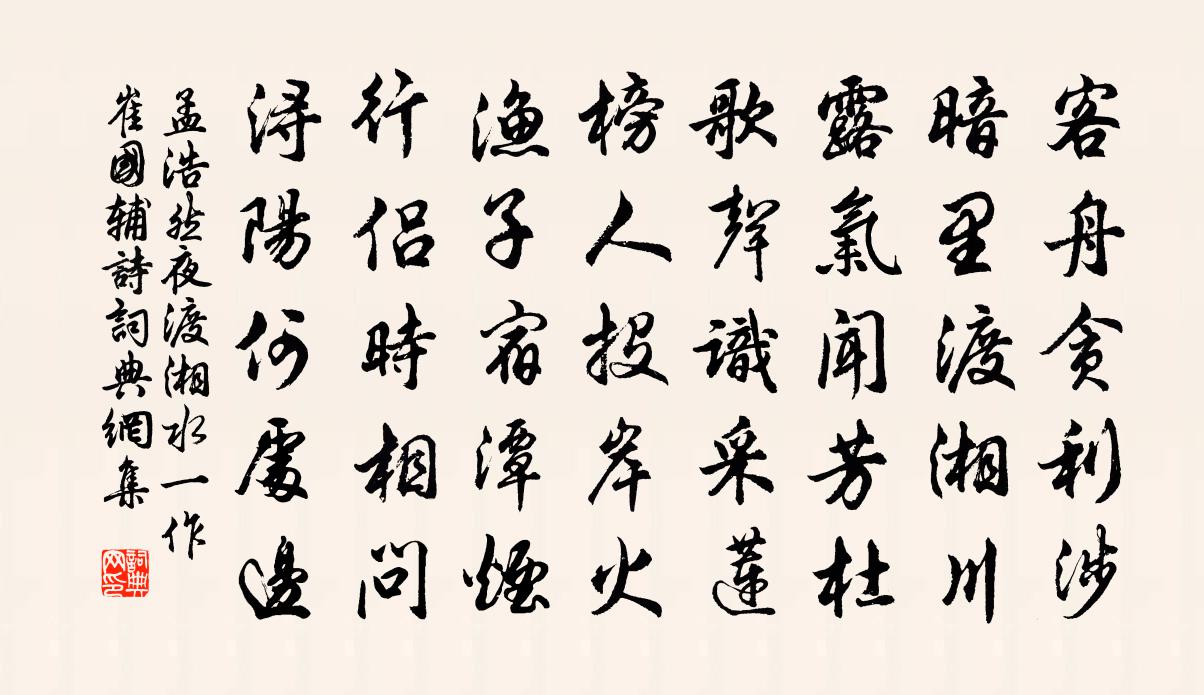 客舟貪利涉
暗里渡湘川
露氣聞芳杜
歌聲識采蓮
榜人投岸火
漁子宿潭煙
行侶時相問
潯陽何處邊
孟浩然夜渡湘水一作
崔國輔詩詞典網集
詞典網印